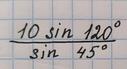 10 sin 120°
sin 45°